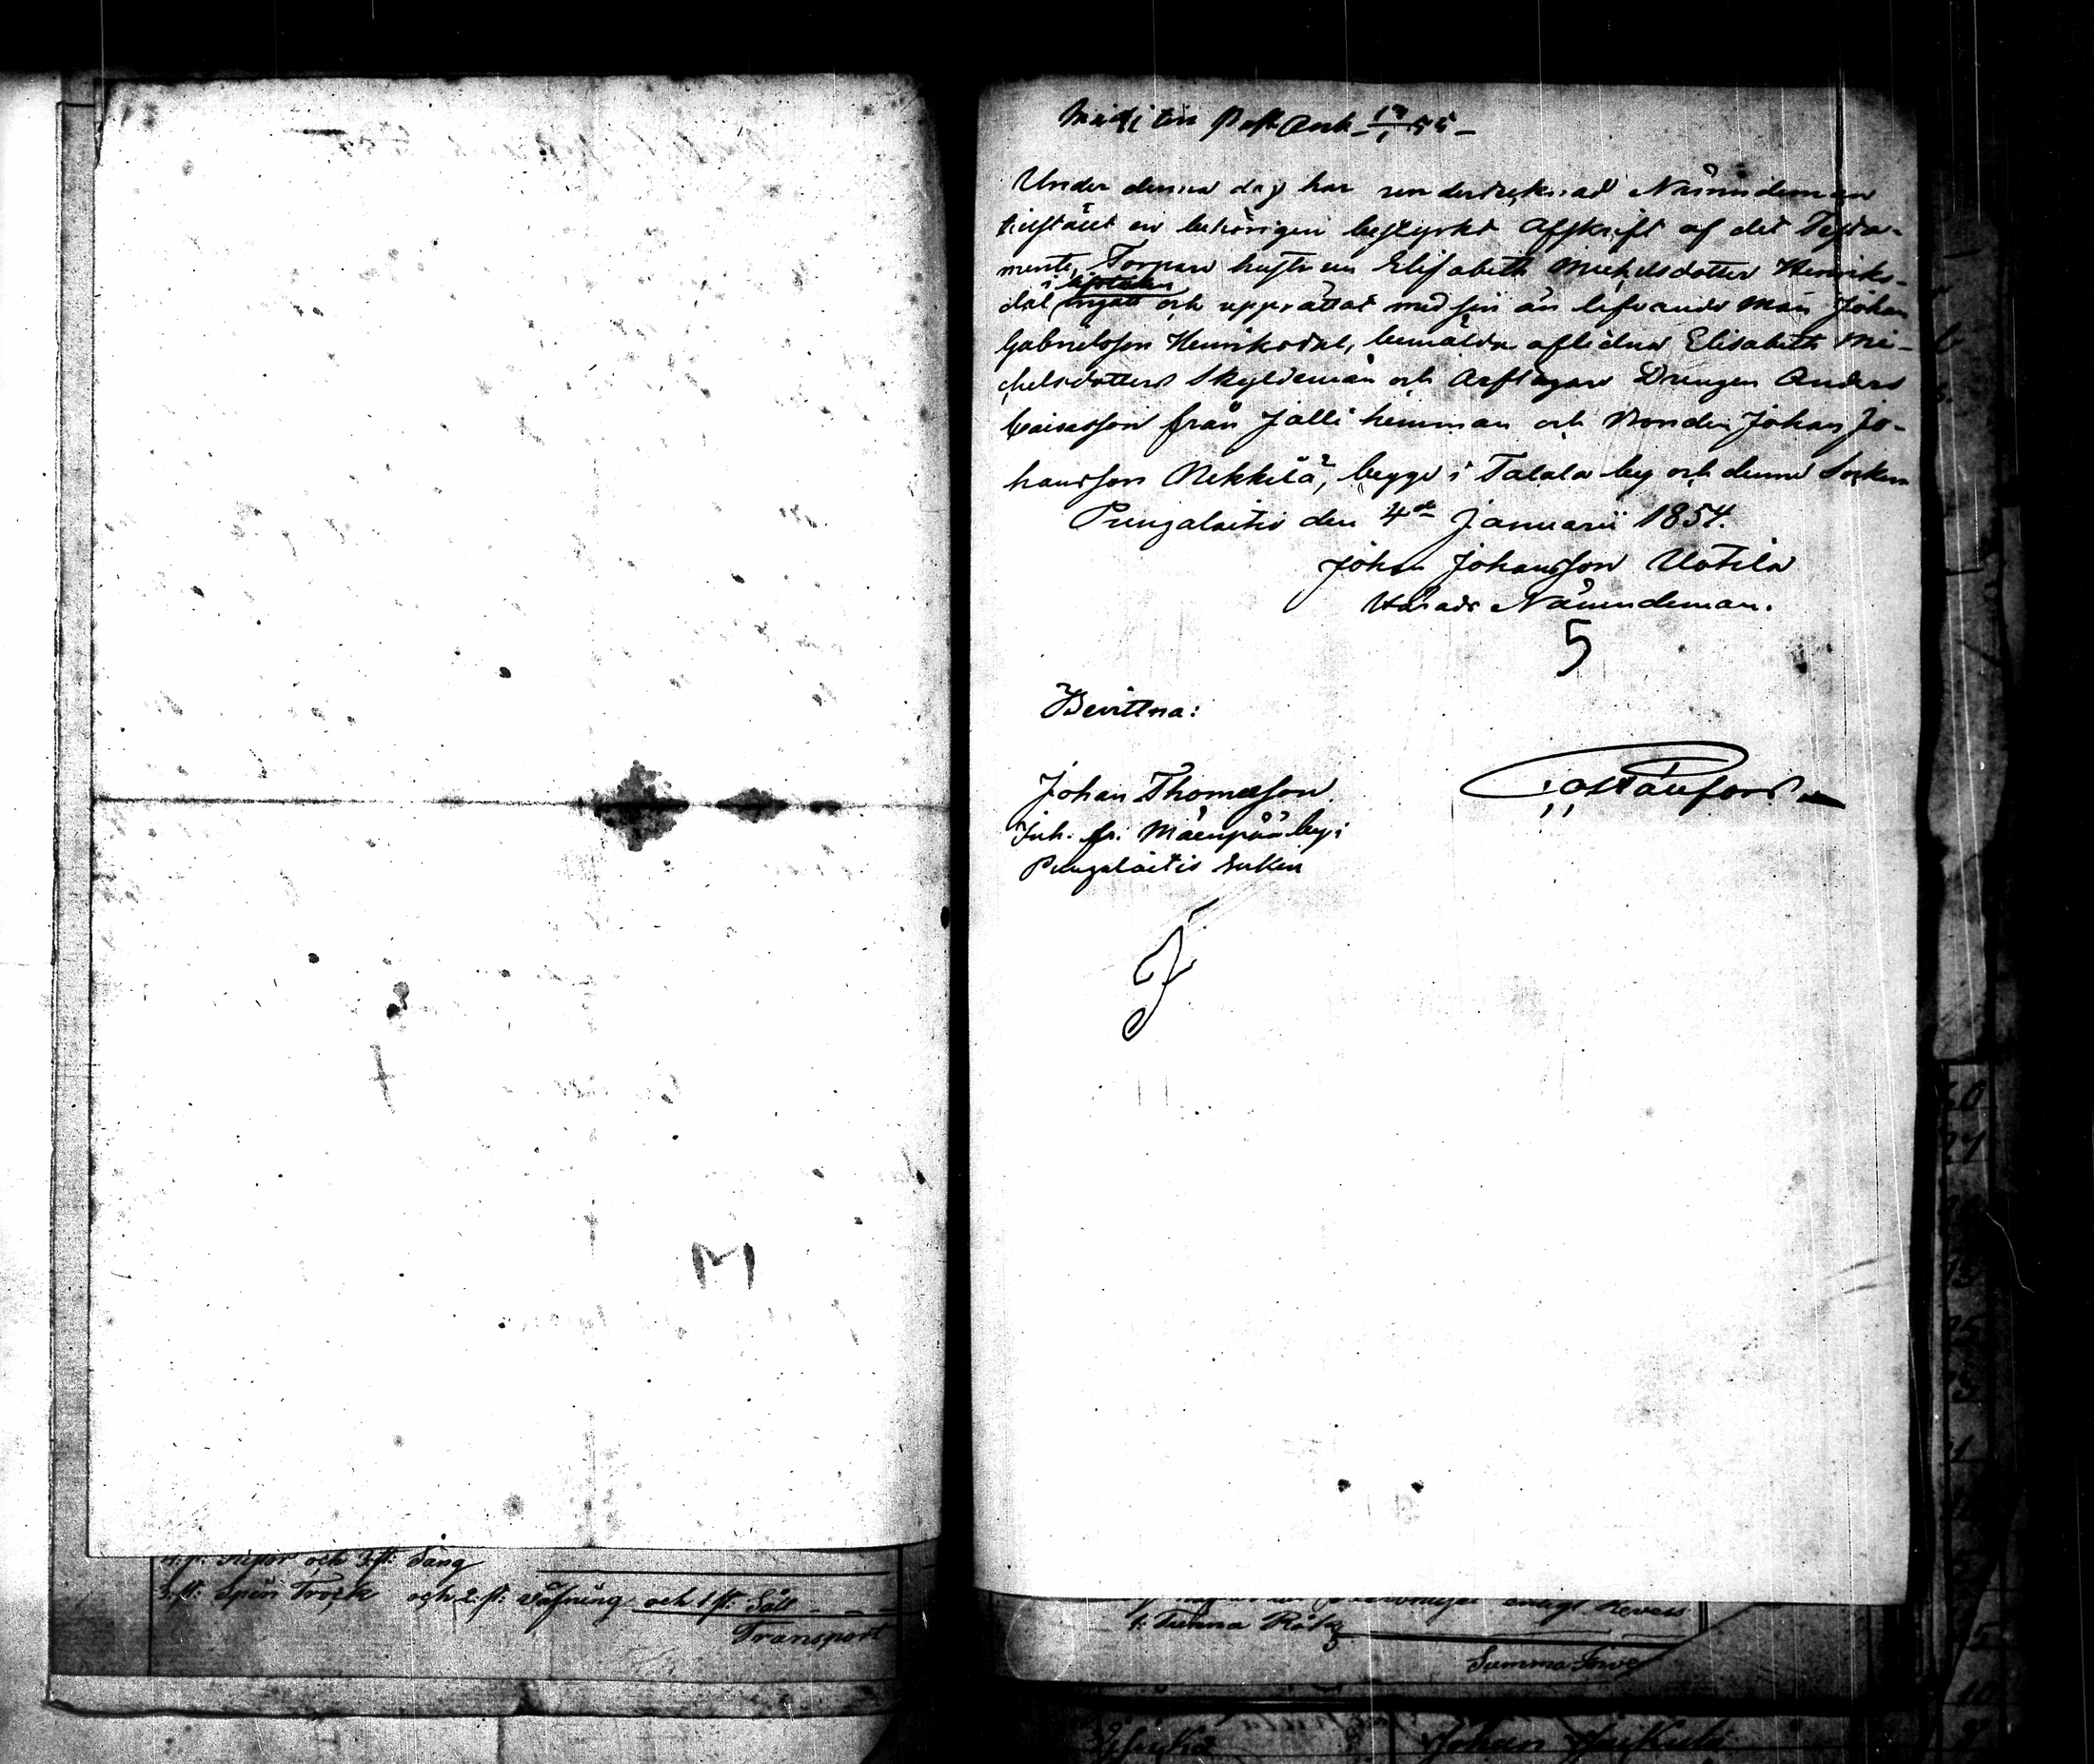 Under denna dag har undertecknad Nämndeman
tillstält en behörigen bestyrkt Afskrift af det Testa-
mente, Torpare hustrun Elisabeth Michelsdotter Henriks-
i lifstiden
dal ingått och upprättat med sin än lefvande Man Johan
Gabrielsson Henriksdal, bemälda aflidna Elisabeth Mi-
chelsdotters Skyldeman och Arftagare Drengen Anders
från Jalli hemman och Bonden Johan Jo-
hansson Rekkilä, begge i Talala by och denne Socken
Pungalaitio den 4de Januarii 1854.
Johan Johansson Uotila
Härads Nämndeman.
5
Bevittna:
Johan Thomasson
Inh. fr. Mäenpää by i
Pungalaitio Socken
M
4. st: och 3. st: Säng
3. st: Spin och 2. st: Väfning och 1 st: Såll
Transport
enligt
1: Tunna Råg
Summa
Johan